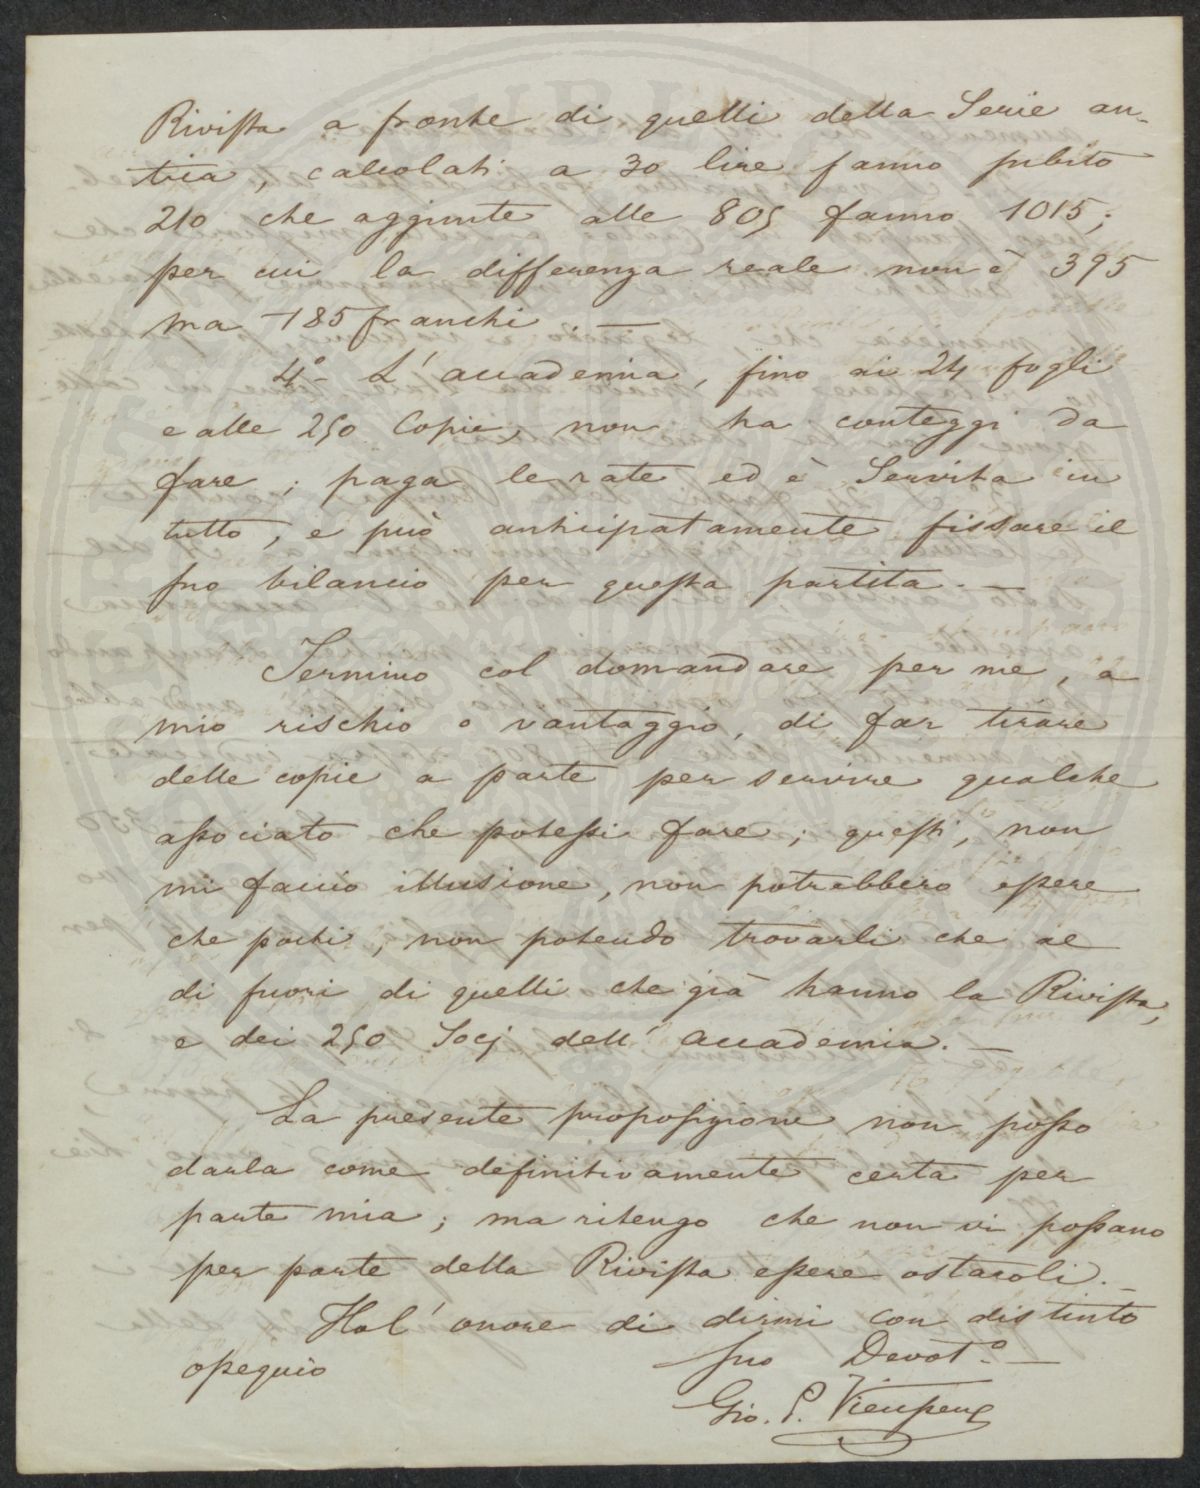 Rivista a fronte di quelli della Serie an-
tica, calcolati a 30 lire fanno subito
210 che aggiunte alle 805 fanno 1015;
per cui la differenza reale non è 395
ma 185 franchi. —
4°- L'accademia, fino ai 24 fogli
e alle 250 Copie, non ha conteggi da
fare; paga le rate ed è Servita in
tutto, e può anticipatamente fissare il
suo bilancio per questa partita. —
Termino col domandare per me, a
mio rischio o vantaggio, di far tirare
delle copie a parte per servire qualche
associato che potessi fare; questi, non
mi faccio illusione, non potrebbero essere
che pochi, non potendo trovarli che al
di fuori di quelli che già hanno la Rivista,
e dei 250 Socj dell'accademia. —
La presente proposizione non posso
darla come definitivamente certa per
parte mia; ma ritengo che non vi possano
per parte della Rivista essere ostacoli. —
Ho l'onore di dirmi con distinto
ossequio
suo Devot.°
Gio. P. Vieusseux